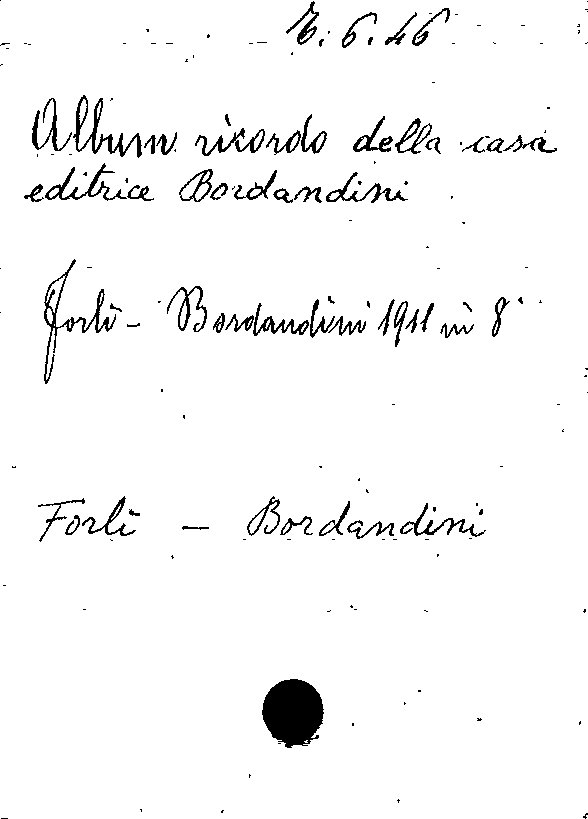 7.6.46
Album ricordo della casa
editrice Bordandini
Forlì - Bordandini 1911 in 8°
Forlì - Bordandini